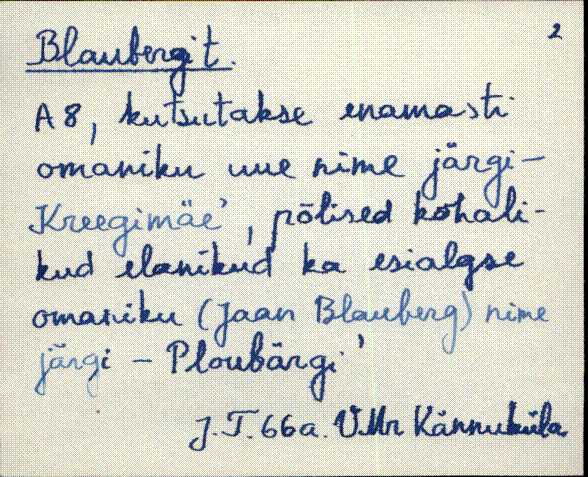 2
Blauberg't.
A8, kutsutakse enamasti
omaniku uue nime järgi –
Kreegimäe', põlised kohali-
kud elanikud ka esialgse
omaniku (Jaan Blauberg) nime
järgi – Ploubärgi'
J.T. 66a. V.Mr Kännuküla